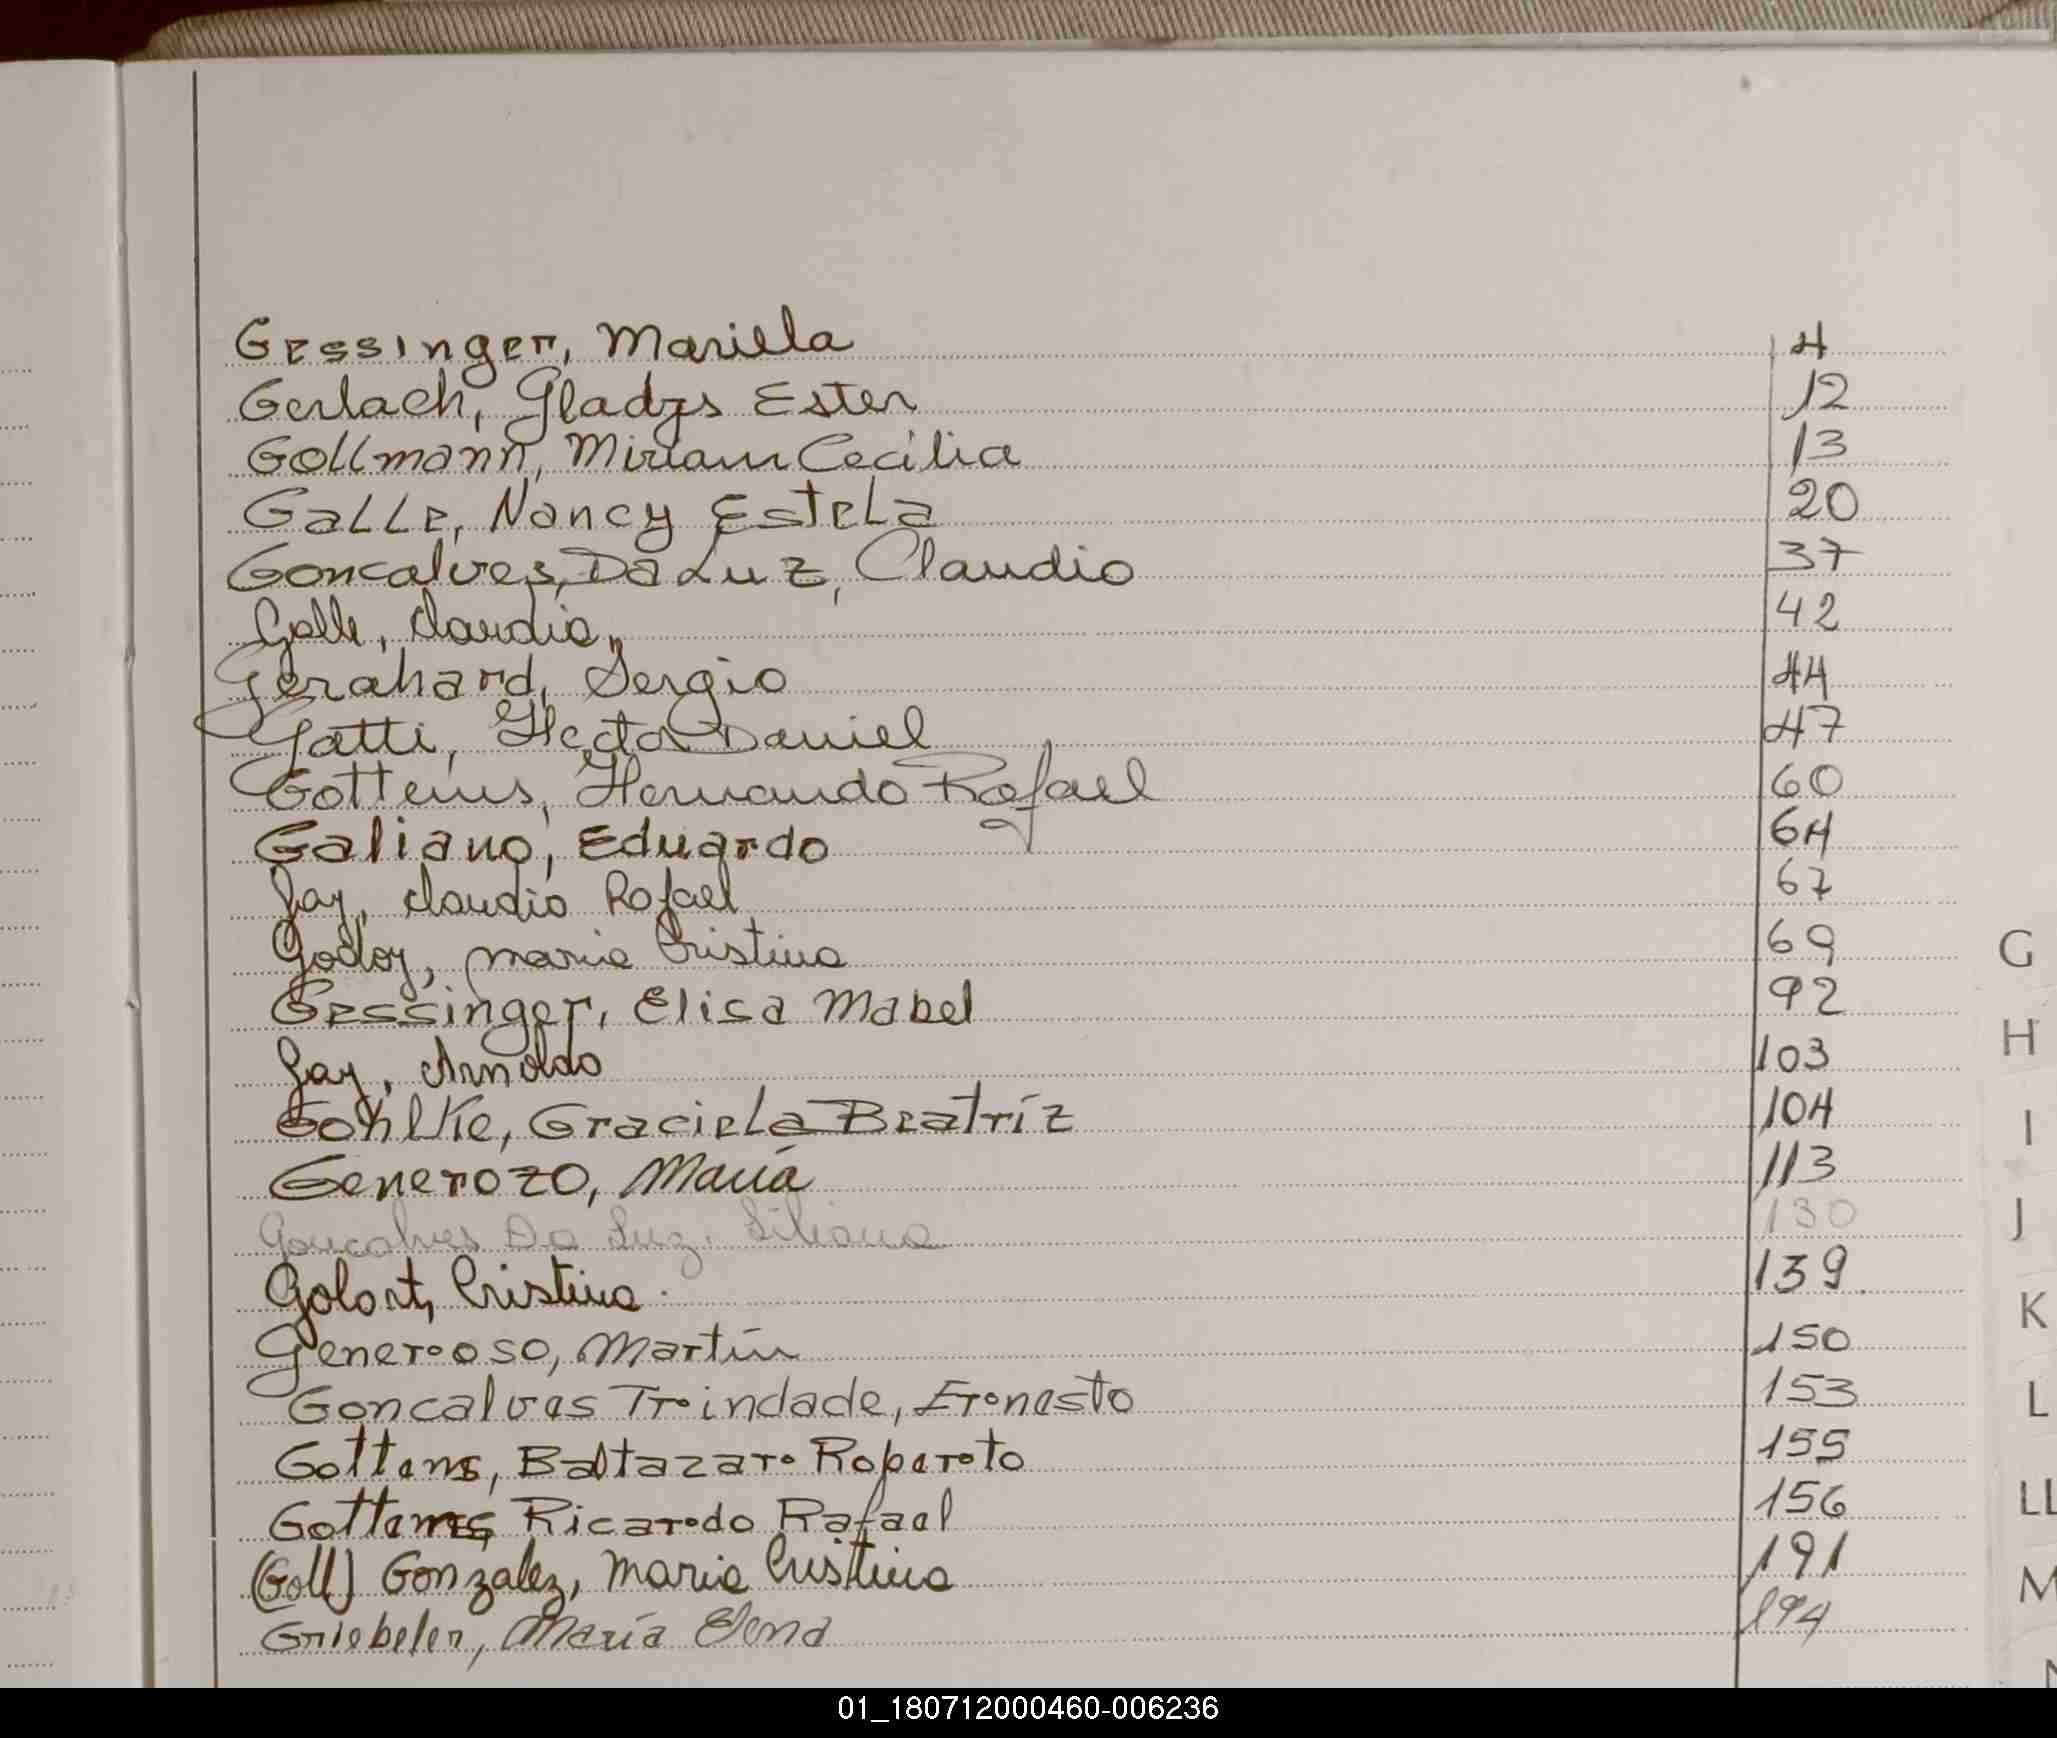 Gessinger, Mariela 4
Gerlach, Gladys Ester 12
Gollmann, Miriam Cecilia 13
Galle, Nancy Estela 20
Goncalves, Da Luz, Claudio 37
Galle, Claudia 42
Gerahard, Sergio 44
Gatti, Hector Daniel 47
Gottems, Hernando Rafael 60
Galiano, Eduardo 64
Gay, Claudio Rafael 67
Godoy, Maria Cristina 69
Gessinger, Elisa Mabel 92
Gay, Arnoldo 103
Gohlke, Graciela Beatríz 104
Generozo, María 113
Goncalves Da Luz, Liliana 130
Golart, Cristina 139
Generoso, Martín 150
Goncalves Trindade, Ernesto 153
Gottems, Baltazar Roberto 155
Gottems, Ricardo Rafael 156
(Goll) Gonzalez, Maria Cristina 191
Griebeler, María Elena 194
G
H
I
J
K
L
LL
M
N
01_180712000460-006236